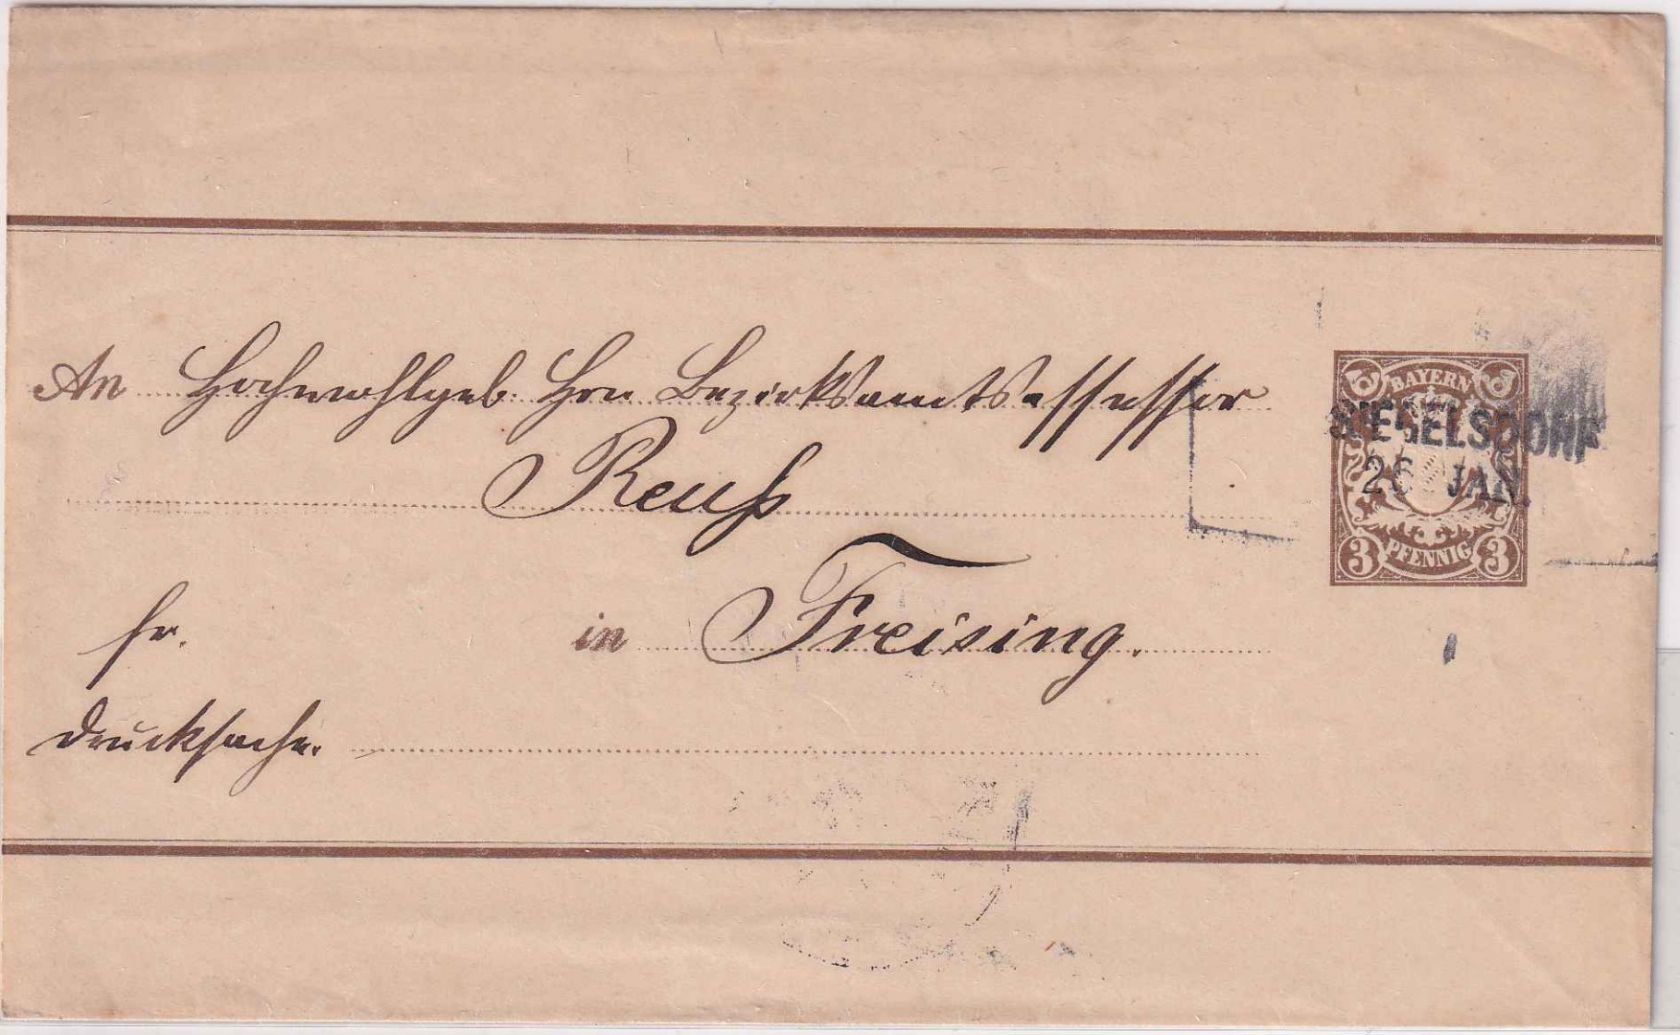 An Hochwohlgeb. Hrn Bezirksamtsassessor
Reuß
fr. in Freising.
Drucksache.
BAYERN
SIEGELSDORF
26 JAN.
3 PFENNIG 3